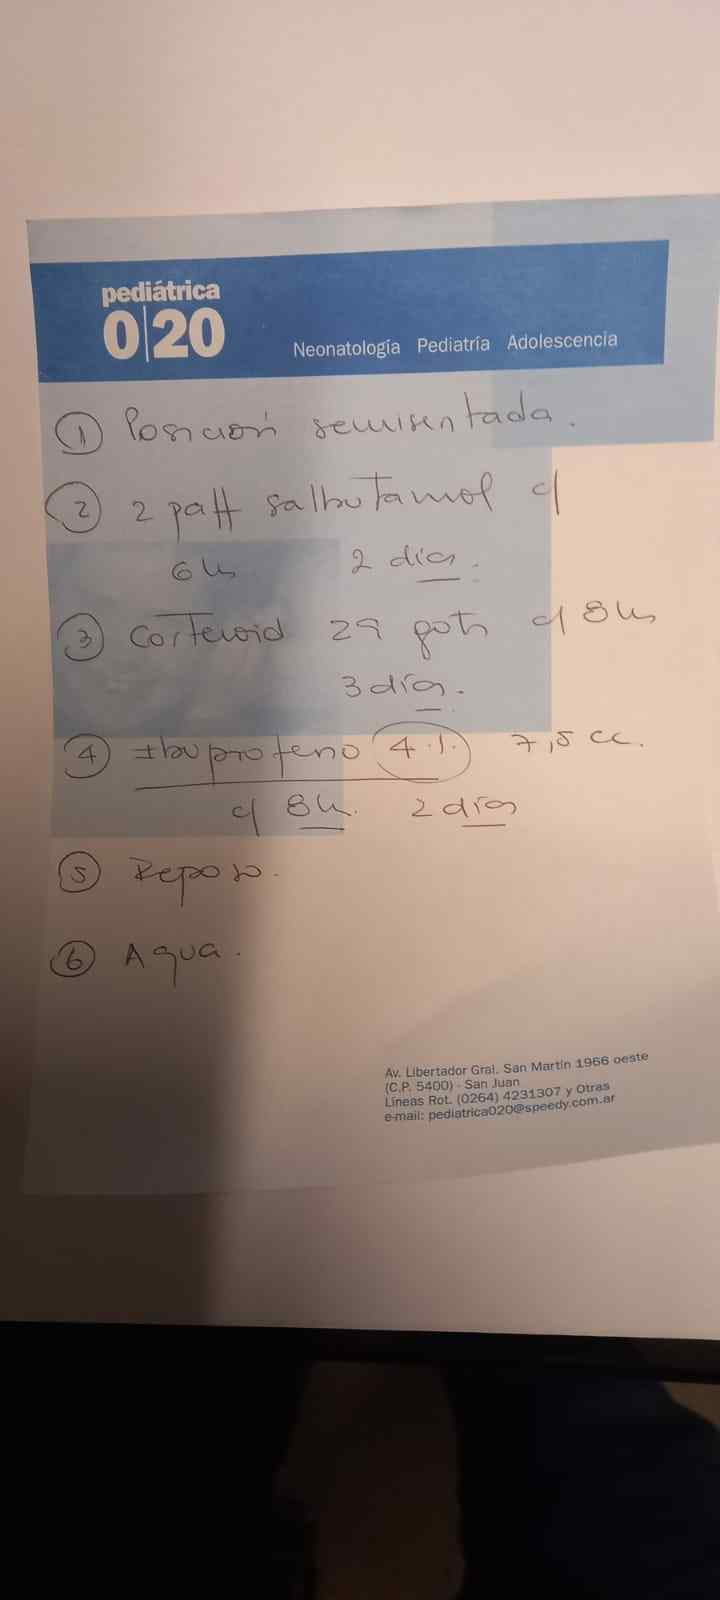 pediátrica
0|20
Neonatología Pediatría Adolescencia
① Posición semisentada.
② 2 paff salbutamol c/
6 hs 2 días.
③ Corteroid 29 gots c/ 8 hs
3 días.
④ Ibuprofeno 4% 7,5 cc.
c/ 8h. 2 días
⑤ Reposo.
⑥ Agua.
Av. Libertador Gral. San Martín 1966 oeste
(C.P. 5400) - San Juan
Líneas Rot. (0264) 4231307 y Otras
e-mail: pediatrica020@speedy.com.ar